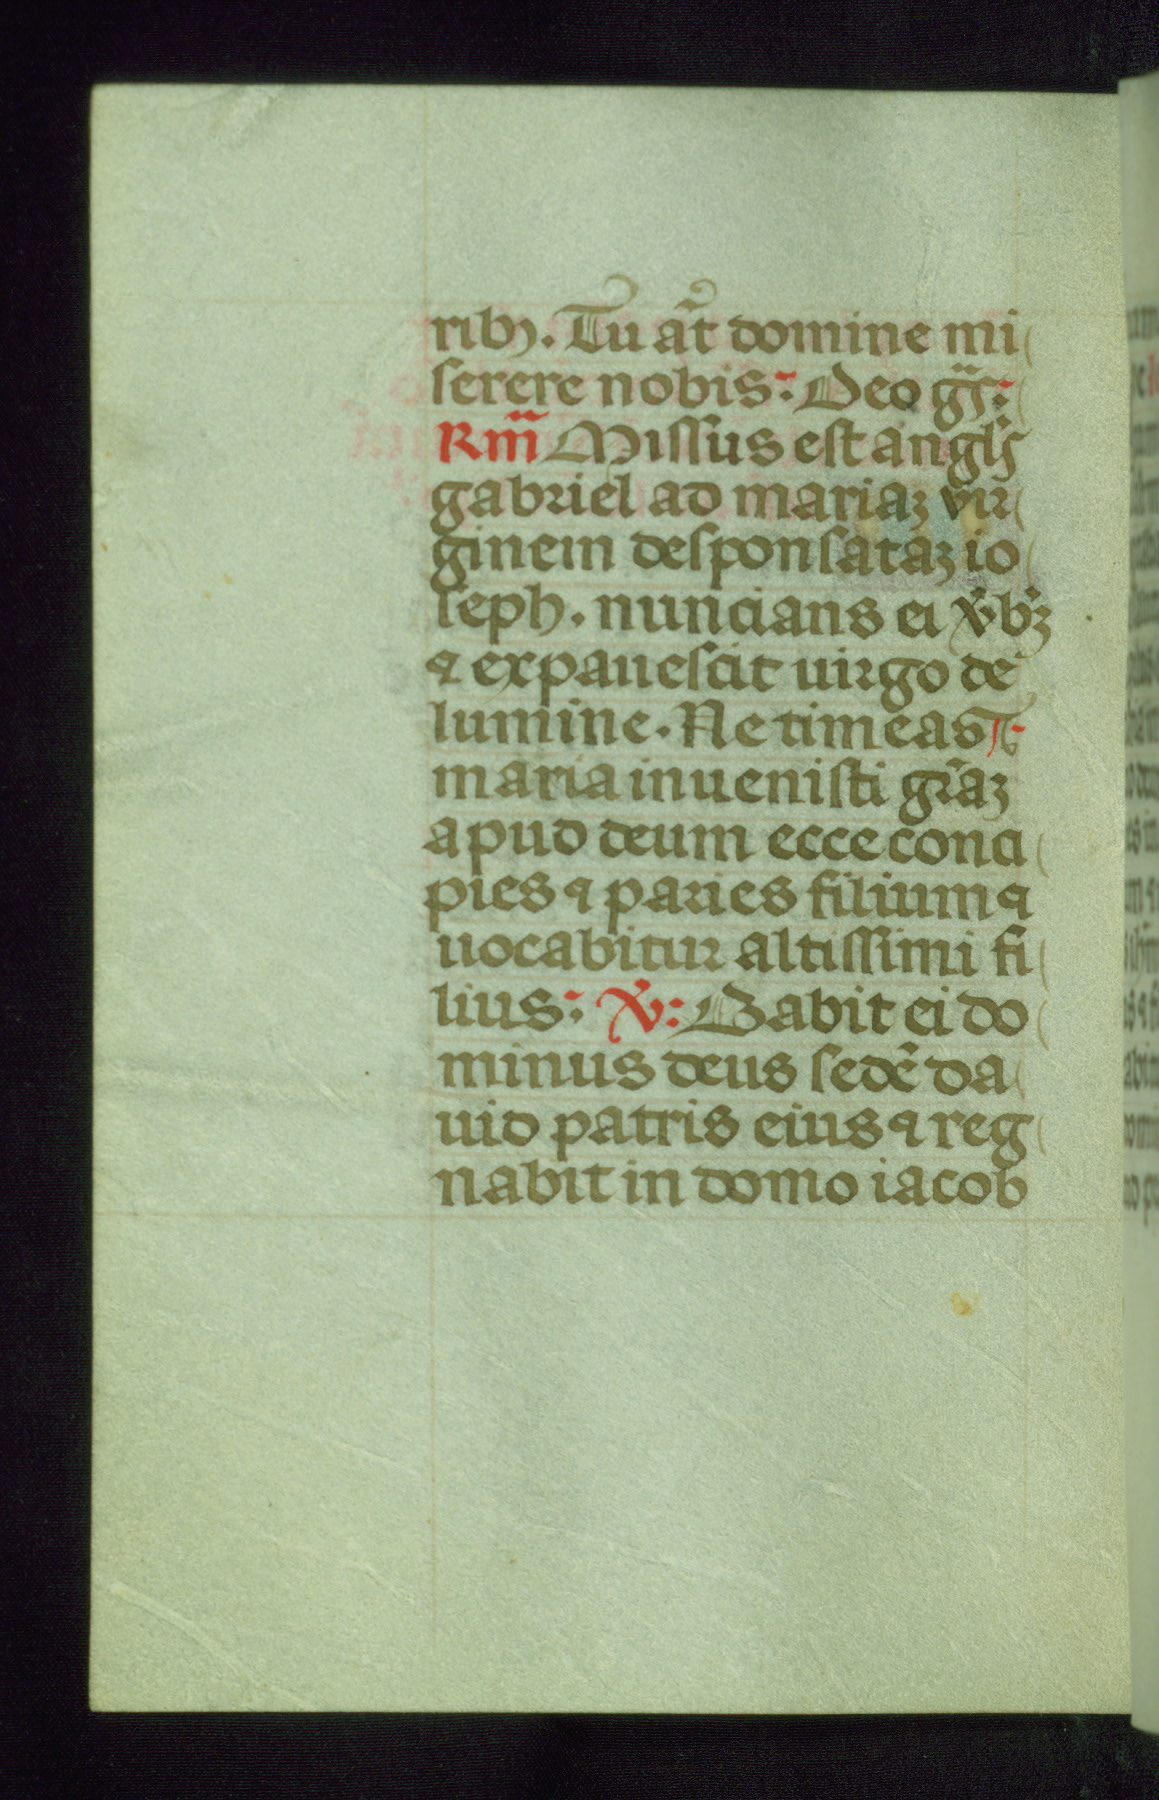 ribꝫ. Tu aūt domine mi
serere nobis: Deo grã̄s:
Rm̄ Missus est angl̃s
gabriel ad mariaꝫ vir
ginem desponsataꝫ io
seph. nuncians ei v̾bꝫ
⁊ expauescit uirgo de
lumine. Ne timeas
maria inuenisti gr̃aꝫ
apud deum ecce conci
pies ⁊ paries filium ⁊
uocabitur altissimi fi
lius: ℣: Dabit ei do
minus deus sedē da
uid patris eius ⁊ reg
nabit in domo iacob